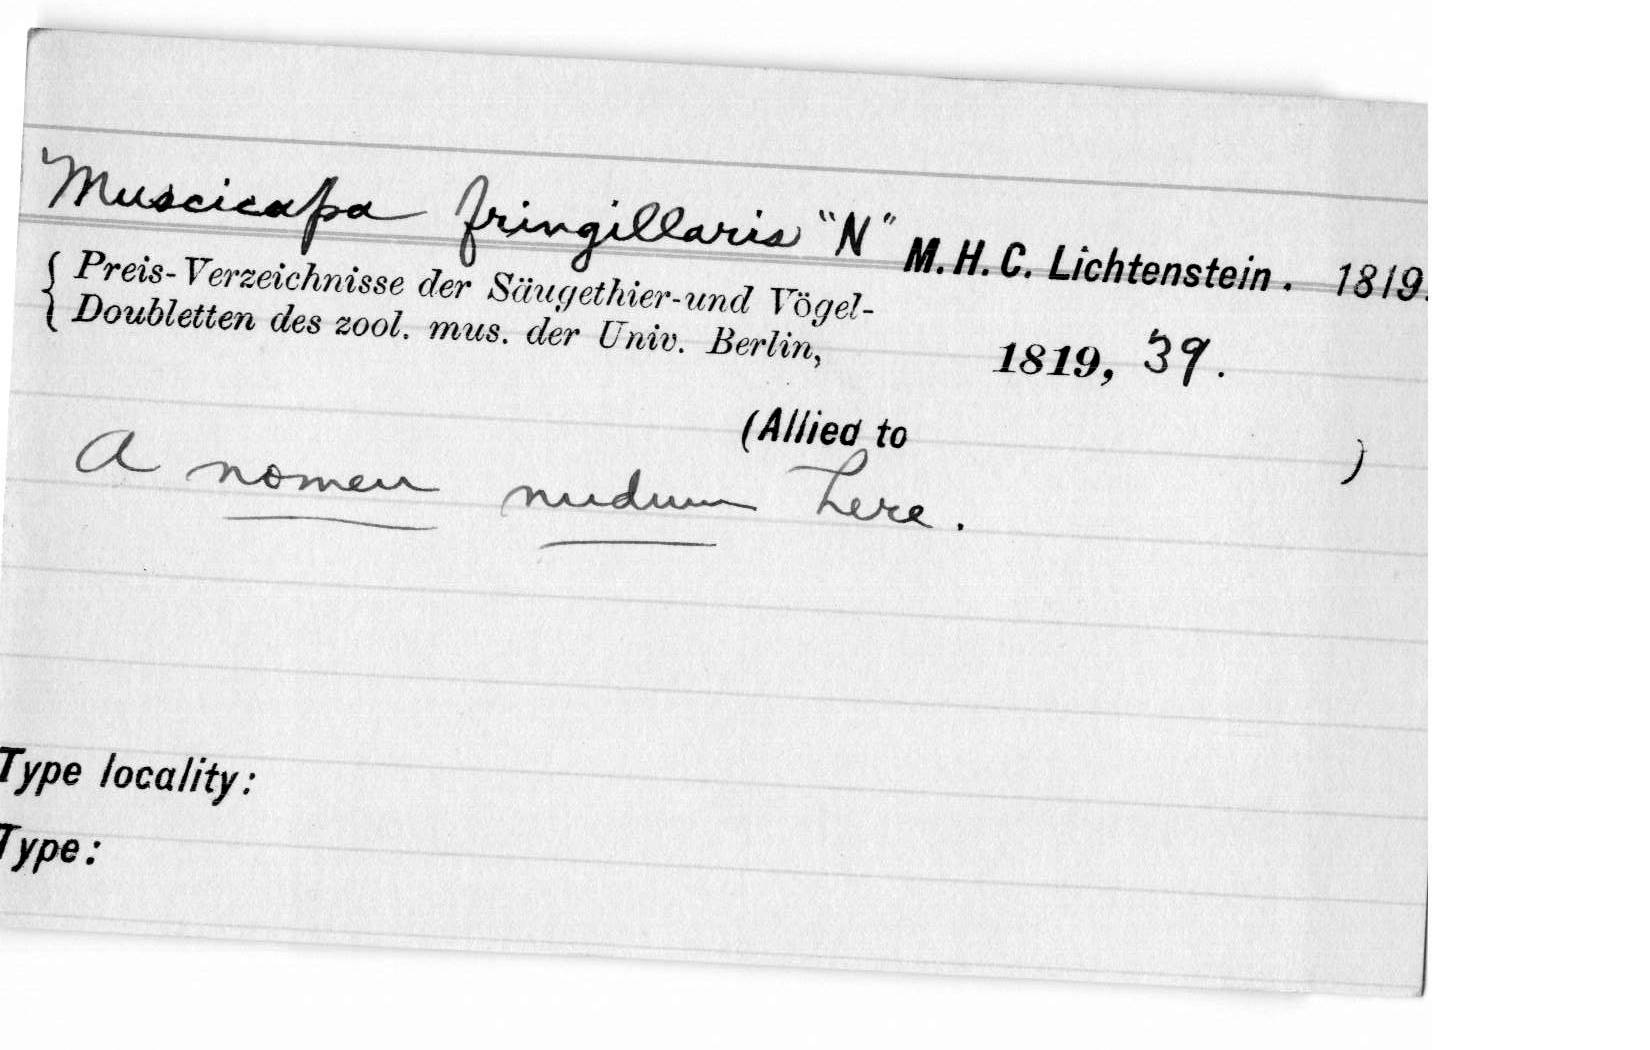 Muscicapa fringillaris "N" M. H. C. Lichtenstein. 1819.
Preis-Verzeichnisse der Säugethier-und Vögel-
Doubletten des zool. mus. der Univ. Berlin, 1819, 39.
(Allied to )
A nomen nudum here.
Type locality:
Type: